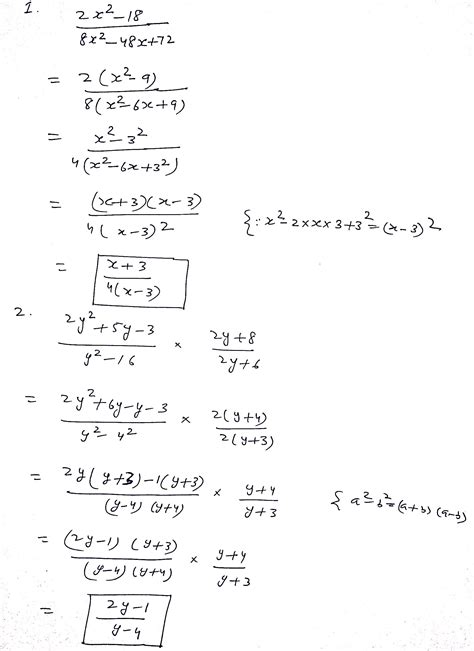 1. (2x²-18)/(8x²-48x+72)
= 2(x²-9)/8(x²-6x+9)
= (x²-3²)/4(x²-6x+3²)
= (x+3)(x-3)/4(x-3)² {∵ x²-2×x×3+3²=(x-3)²
= (x+3)/4(x-3)
2. (2y²+5y-3)/(y²-16) × (2y+8)/(2y+6)
= (2y²+6y-y-3)/(y²-4²) × 2(y+4)/2(y+3)
= (2y(y+3)-1(y+3))/(y-4)(y+4) × (y+4)/(y+3) { a²-b²=(a+b)(a-b)
= (2y-1)(y+3)/(y-4)(y+4) × (y+4)/(y+3)
= (2y-1)/(y-4)